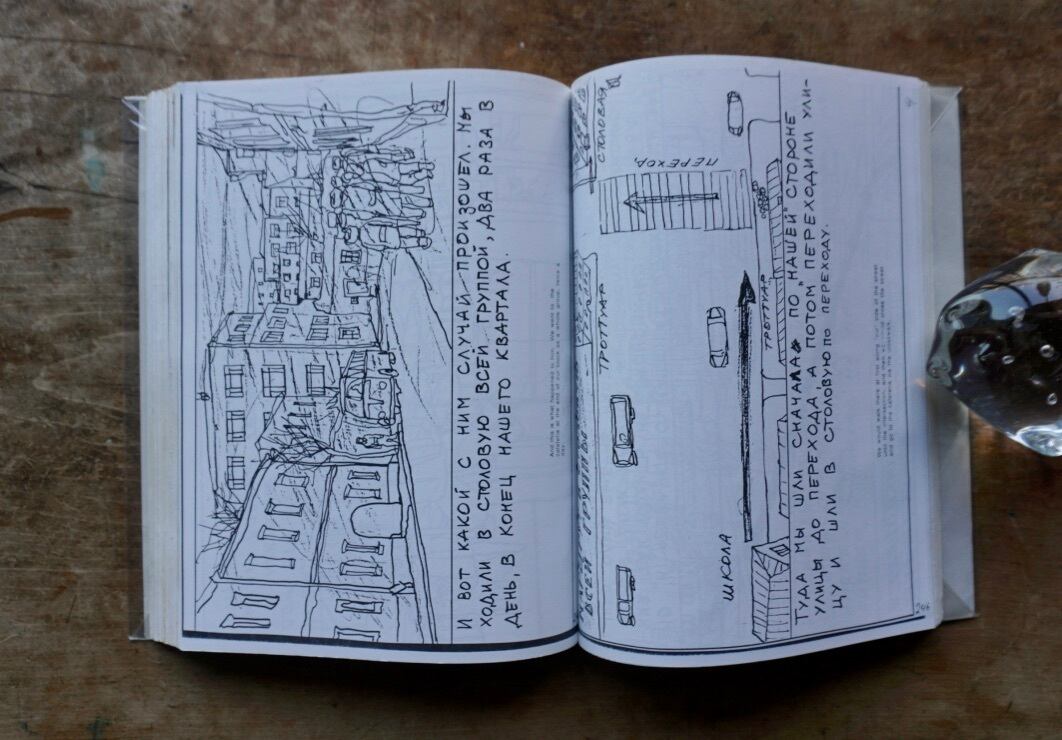 И ВОТ КАКОЙ С НИМ СЛУЧАЙ ПРОИЗОШЕЛ. МЫ
ХОДИЛИ В СТОЛОВУЮ ВСЕЙ ГРУППОЙ, ДВА РАЗА В
ДЕНЬ, В КОНЕЦ НАШЕГО КВАРТАЛА.
And this is what happened to him. We went to the
cafeteria at the end of our block as a whole group, twice a
day.
ВСЕЙ ГРУППЫ
СТОЛОВАЯ
ТРОТУАР
ПЕРЕХОД
ШКОЛА
ТРОТУАР
ТУДА МЫ ШЛИ СНАЧАЛА ПО „НАШЕЙ" СТОРОНЕ
УЛИЦЫ ДО ПЕРЕХОДА, А ПОТОМ ПЕРЕХОДИЛИ УЛИ-
ЦУ И ШЛИ В СТОЛОВУЮ ПО ПЕРЕХОДУ.
We would walk there at first along "our" side of the street
until the intersection and then we cross the street
and go to the cafeteria via the crosswalk.
246